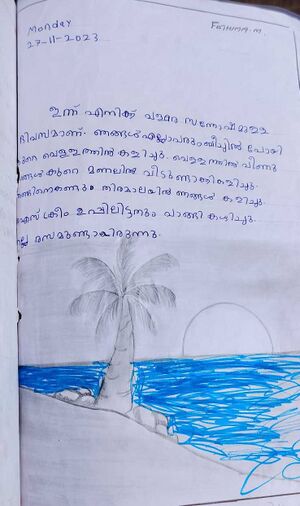 Monday
27-11-2023
Fathima.M.
ഇന്ന് എനിക്ക് വളരെ സന്തോഷമുള്ള
ദിവസമാണ്. ഞങ്ങൾ എല്ലാവരും ബീച്ചിൽ പോയി
കുറെ വെള്ളത്തിൽ കളിച്ചു. വെള്ളത്തിൽ വീണു
ങ്ങൾ കുറെ മണലിൽ വീടുണ്ടാക്കികളിച്ചു.
തിരമാലയിൽ ഞങ്ങൾ കളിച്ചു.
ഐസ്ക്രീം ഉപ്പിലിട്ടതും വാങ്ങി കഴിച്ചു.
രസമുണ്ടായിരുന്നു.